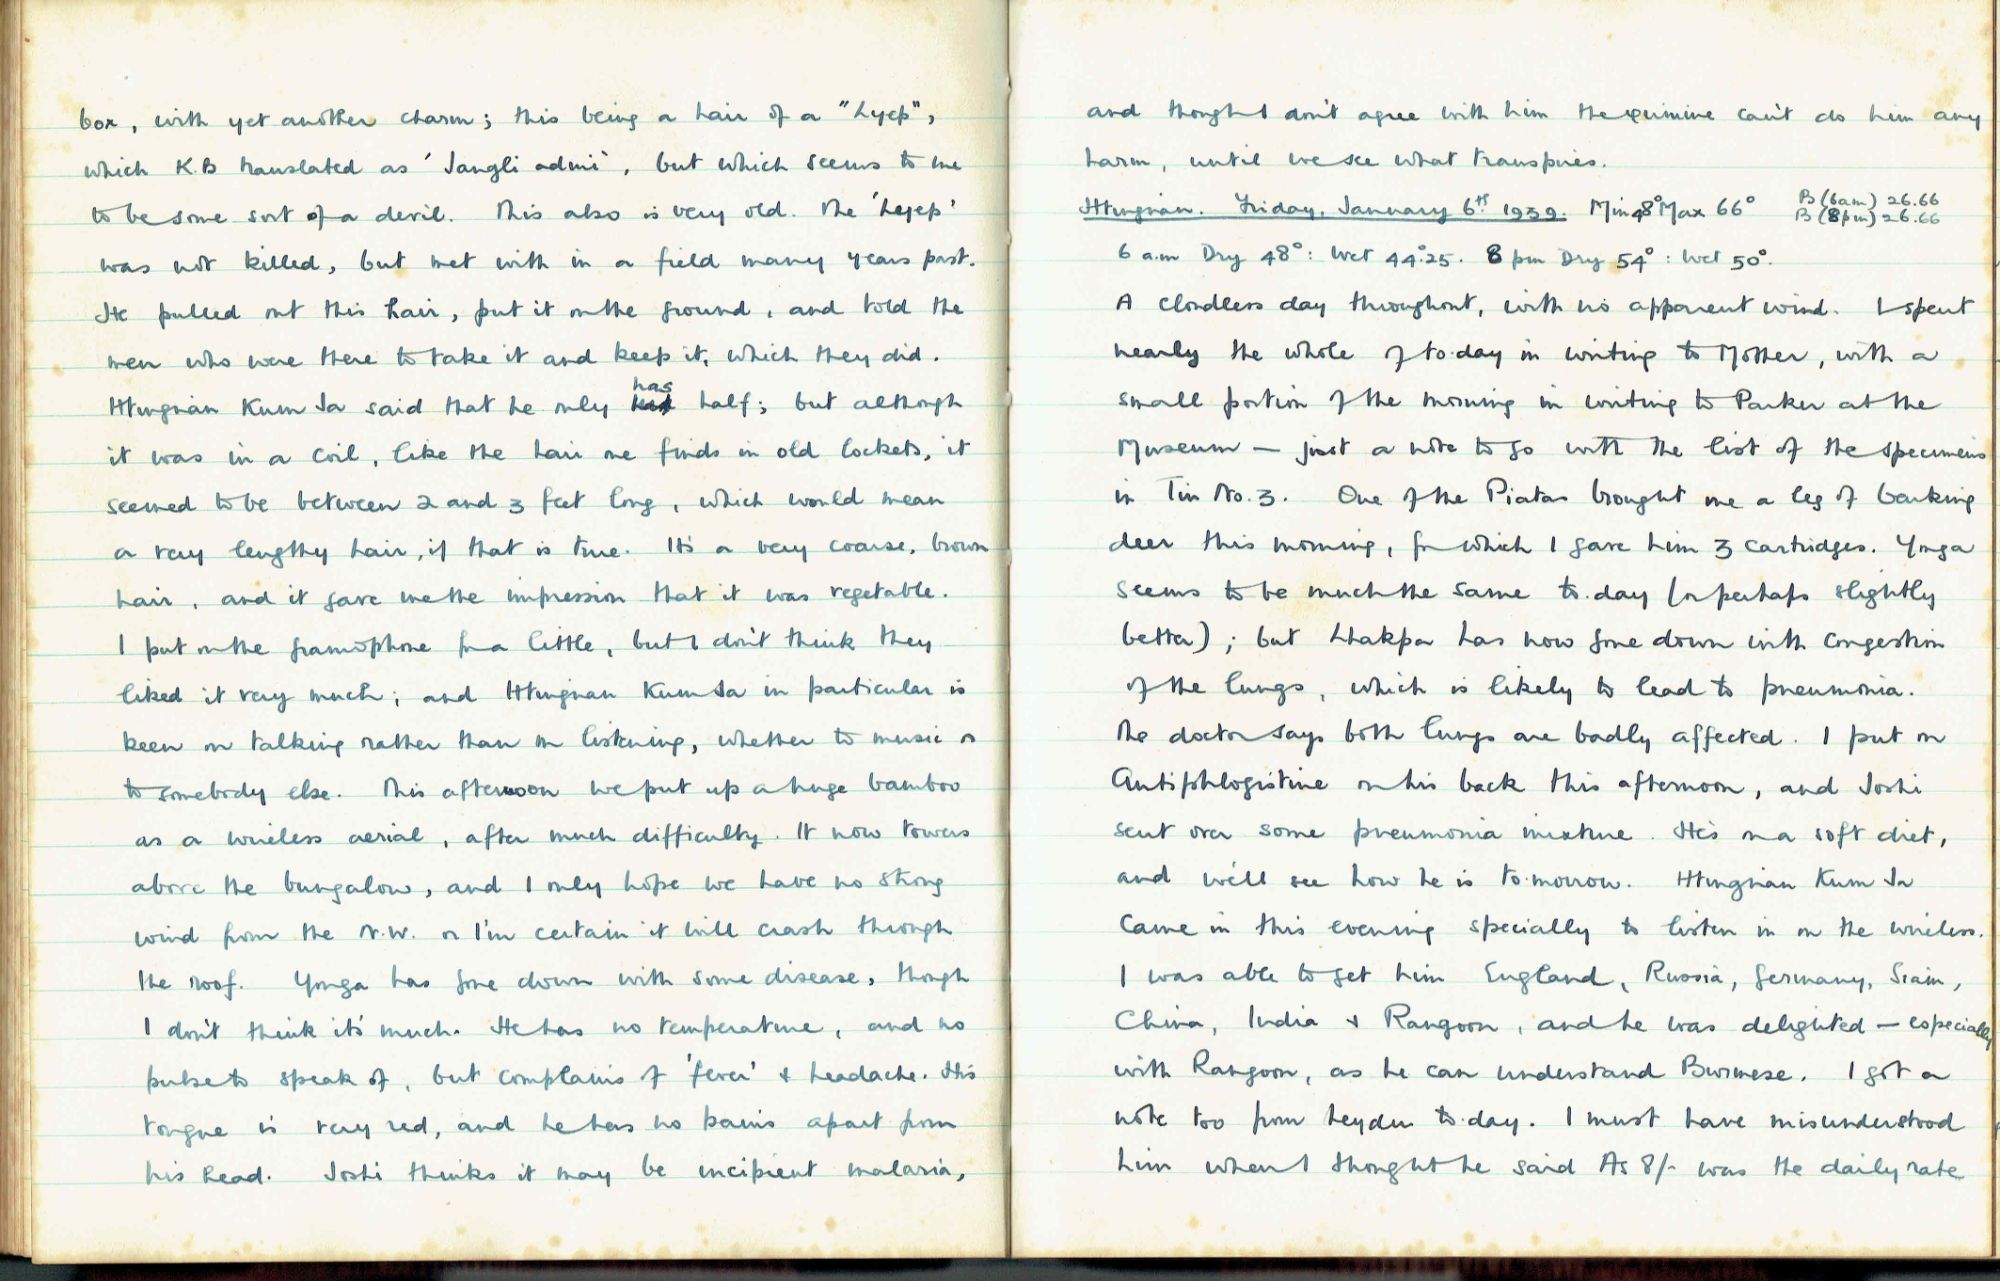 box, with yet another charm; this being a hair of a "Lyep",
which K.B translated as 'Jangli admi', but which seems to me
to be some sort of a devil. This also is very old. The 'Leyep'
was not killed, but met with in a field many years past.
He pulled out this hair, put it on the ground, and told the
men who were there to take it and keep it, which they did.
Htingnan Kum Ja said that he only has half; but although
it was in a coil, like the hair one finds in old lockets, it
seemed to be between 2 and 3 feet long, which would mean
a very lengthy hair, if that is true. It's a very coarse, brown
hair, and it gave me the impression that it was vegetable.
I put on the gramophone for a little, but I don't think they
liked it very much; and Htingnan Kum Ja in particular is
keen on talking rather than on listening, whether to music or
to somebody else. This afternoon we put up a huge bamboo
as a wireless aerial, after much difficulty. It now towers
above the bungalow, and I only hope we have no strong
wind from the N.W. or I'm certain it will crash through
the roof. Yonga has gone down with some disease, though
I don't think it's much. He has no temperature, and no
pulse to speak of, but complains of 'fever' & headache. His
tongue is very red, and he has no pains apart from
his head. Joshi thinks it may be incipient malaria,
and though I don't agree with him the quinine can't do him any
harm, until we see what transpires.
Htingnan. Friday, January 6th 1939. Min 48° Max 66° B (6am) 26.66
B (8pm) 26.66
6 a.m Dry 48°: Wet 44.°25. 8 pm Dry 54°: Wet 50°.
A cloudless day throughout, with no apparent wind. I spent
nearly the whole of to-day in writing to Mother, with a
small portion of the morning in writing to Parker at the
Museum — just a note to go with the list of the specimens
in Tin No. 3. One of the Piatas brought me a leg of barking
deer this morning, for which I gave him 3 cartridges. Yonga
seems to be much the same to-day (or perhaps slightly
better); but Lhakpa has now gone down with congestion
of the lungs, which is likely to lead to pneumonia.
The doctor says both lungs are badly affected. I put on
Antiphlogistine on his back this afternoon, and Joshi
sent over some pneumonia mixture. He's on a soft diet,
and we'll see how he is to-morrow. Htingnan Kum Ja
came in this evening specially to listen in on the wireless.
I was able to get him England, Russia, Germany, Siam,
China, India & Rangoon, and he was delighted — especially
with Rangoon, as he can understand Burmese. I got a
note too from Leyden to-day. I must have misunderstood
him when I thought he said As 8/- was the daily rate